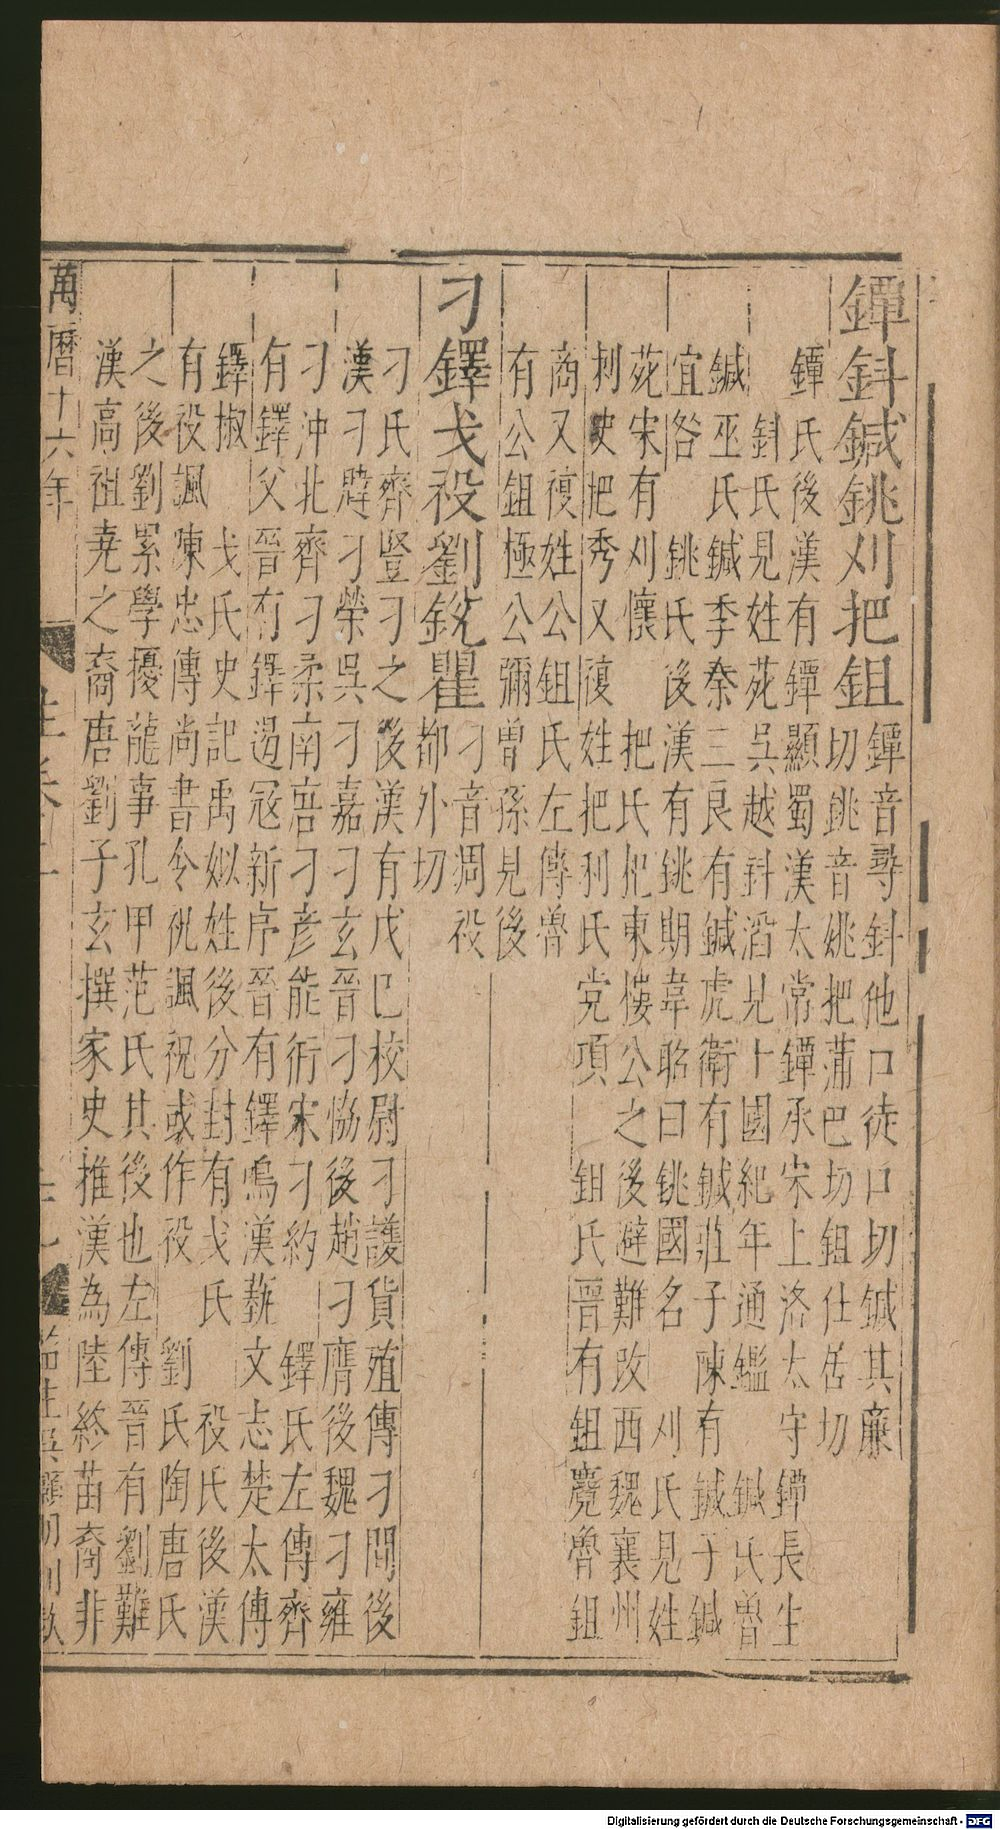 鐔鈄鍼銚刈把鉏
鐔音尋鈄他口徒口切鍼其廉
切銚音姚把蒲巴切鉏仕居切
鐔氏後漢有鐔顯蜀漢太常鐔承宋上洛太守鐔長生
鈄氏見姓苑吳越鈄滔見十國紀年通鑑鍼氏魯
鍼巫氏鍼季秦三良有鍼虎衛有鍼莊子陳有鍼子鍼
宜咎銚氏後漢有銚期韋昭曰銚國名刈氏見姓
苑宋有刈懷把氏把東樓公之後避難改西魏襄州
刺史把秀又複姓把利氏党項鉏氏晉有鉏麑魯鉏
商又複姓公鉏氏左傳魯
有公鉏極公彌曾孫見後
刁鐸戈祋劉銳瞿
刁音凋祋
都外切
刁氏齊豎刁之後漢有戊巳校尉刁護貨殖傳刁間後
漢刁韙刁榮吳刁嘉刁玄晉刁協後趙刁膺後魏刁雍
刁沖北齊刁柔南唐刁彥能衎宋刁約鐸氏左傳齊
有鐸父晉有鐸遏寇新序晉有鐸鳴漢藝文志楚太傅
鐸椒戈氏史記禹姒姓後分封有戈氏祋氏後漢
有祋諷陳忠傳尚書令祝諷祝或作祋劉氏陶唐氏
之後劉累學擾龍事孔甲范氏其後也左傳晉有劉難
漢高祖堯之裔唐劉子玄撰家史推漢為陸終苗裔非
萬曆十六年